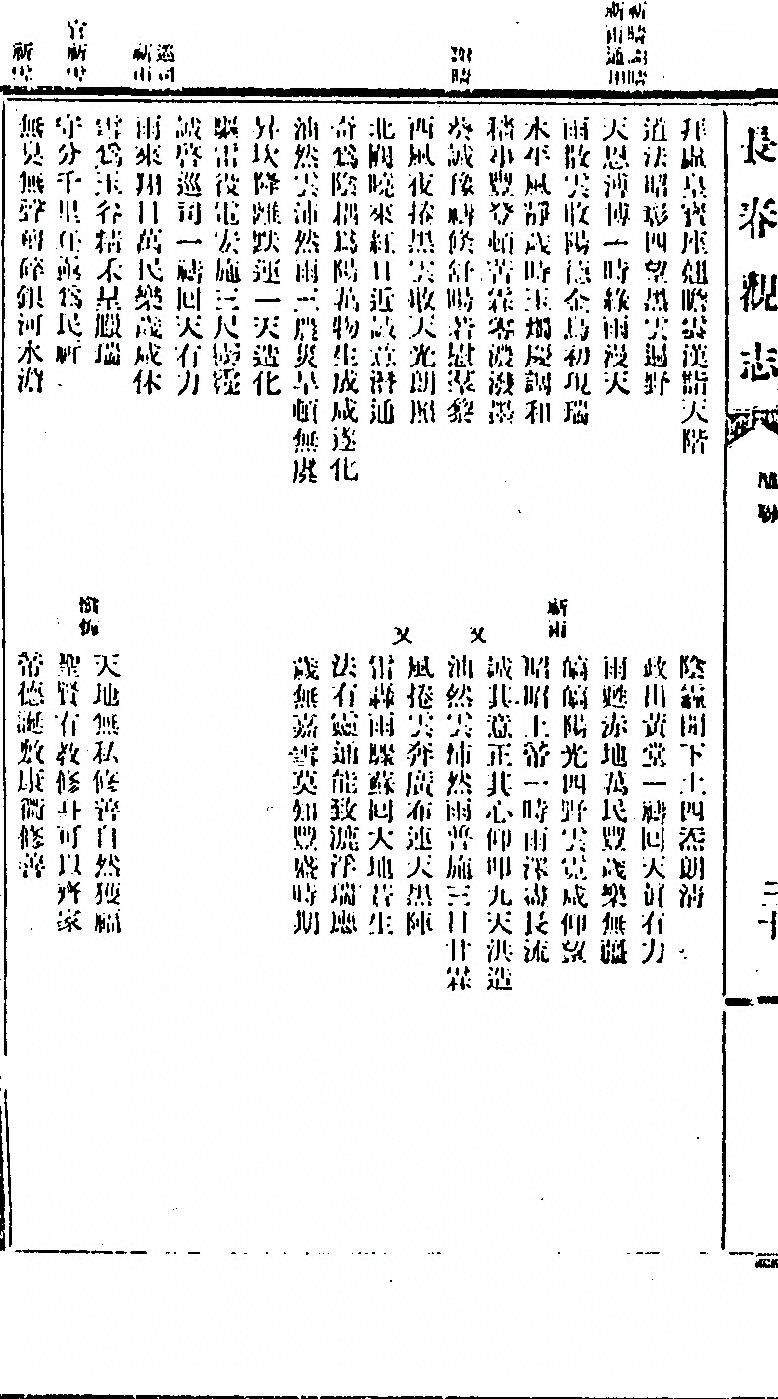 長春觀志
聯
三十
祈晴謝晴
祈雨通用
拜虛皇寶座翹瞻雲漢詣天階
陰靄開下土四炁朗清
道法昭彰四望黑雲遍野
政出黃堂一禱回天洵有力
天恩溥博一時綠雨漫天
雨甦赤地萬民豐歲樂無疆
雨散雲收陽德金烏初現瑞
皜皜陽光四野雲霓咸仰望
祈雨
水平風靜歲時玉燭慶調和
昭昭上帝一時雨澤盡長流
穡事豐登頓苦霖零濃潑墨
誠其意正其心仰叩九天洪造
謝晴
葵誠豫禱倏舒暘若慰羣黎
油然雲沛然雨普施三日甘霖
又
西風夜捲黑雲收天光朗照
風捲雲奔廣布連天黑陣
北闕曉來紅日近誠意潛通
雷轟雨驟蘇回大地蒼生
又
奇爲陰耦爲陽萬物生成咸遂化
法有靈通能致滮浮瑞應
油然雲沛然雨三農災旱頓無虞
歲無嘉雪莫知豐盛時期
昇坎降離默運一天造化
驅雷役電宏施三尺靈
巡司
祈雨
誠啓巡司一禱回天有力
雨來翔日萬民樂歲咸休
雪爲玉谷精禾呈臘瑞
天地無私修善自然獲福
官祈雪
守分千里任露爲民祈
聖賢有教修身可以齊家
祈雪
無臭無聲剪碎銀河水滑
帝德誕敷康衢修善